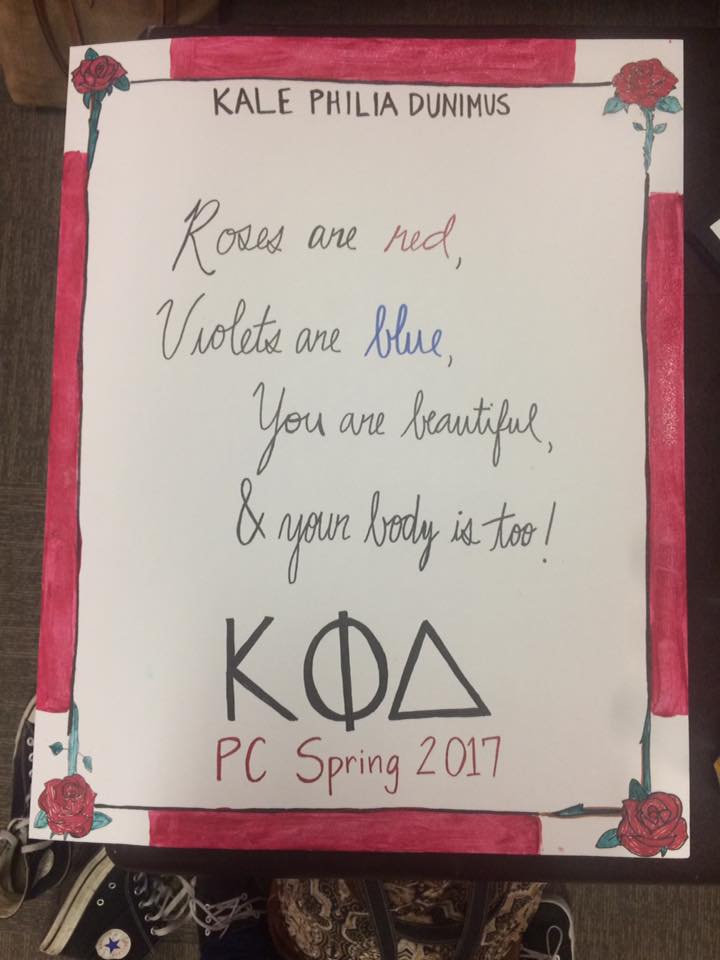 KALE PHILIA DUNIMUS
Roses are red,
Violets are blue,
You are beautiful,
& your body is too!
ΚΦΔ
PC Spring 2017